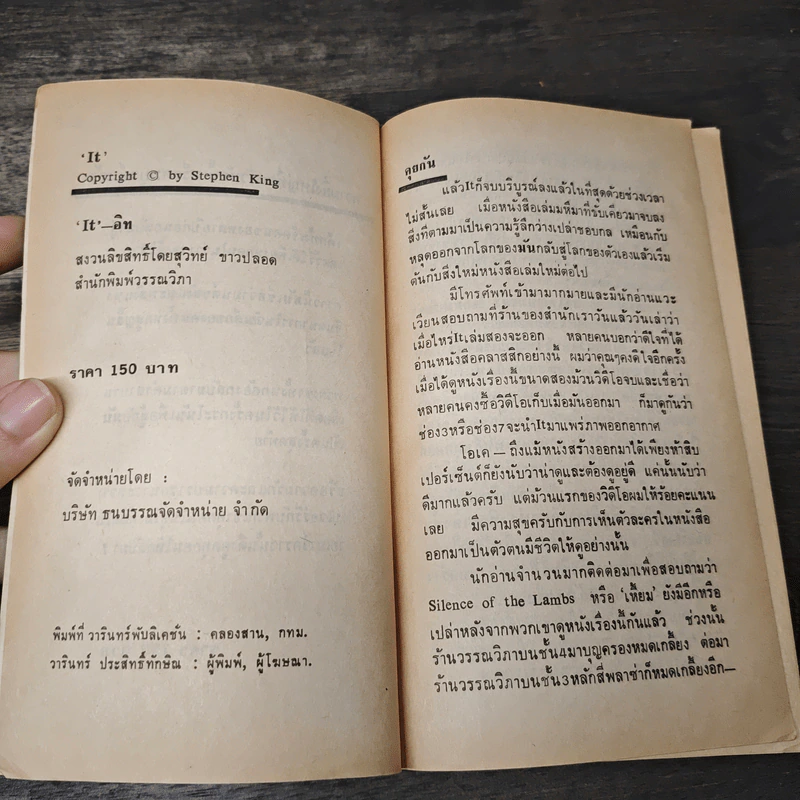 'It'
Copyright © by Stephen King
'It'—อิท
สงวนลิขสิทธิ์โดยสุวิทย์ ขาวปลอด
สำนักพิมพ์วรรณวิภา
ราคา 150 บาท
จัดจำหน่ายโดย :
บริษัท ธนบรรณจัดจำหน่าย จำกัด
พิมพ์ที่ วารินทร์พับลิเคชั่น : คลองสาน, กทม.
วารินทร์ ประสิทธิ์ทักษิณ : ผู้พิมพ์, ผู้โฆษณา.
คุยกัน
แล้วItก็จบบริบูรณ์ลงแล้วในที่สุดด้วยช่วงเวลา
ไม่สั้นเลย เมื่อหนังสือเล่มมหึมาที่ขับเคี่ยวมาจบลง
สิ่งที่ตามมาเป็นความรู้สึกว่างเปล่าชอบกล เหมือนกับ
หลุดออกจากโลกของมันกลับสู่โลกของตัวเองแล้วเริ่ม
ต้นกับสิ่งใหม่หนังสือเล่มใหม่ต่อไป
มีโทรศัพท์เข้ามามากมายและมีนักอ่านแวะ
เวียนสอบถามที่ร้านของสำนักเราวันแล้ววันเล่าว่า
เมื่อไหร่Itเล่มสองจะออก หลายคนบอกว่าดีใจที่ได้
อ่านหนังสือคลาสสิกอย่างนี้ ผมว่าคุณๆคงดีใจอีกครั้ง
เมื่อได้ดูหนังเรื่องนี้ขนาดสองม้วนวิดีโอจบและเชื่อว่า
หลายคนคงซื้อวิดีโอเก็บเมื่อมันออกมา ก็มาดูกันว่า
ช่อง3หรือช่อง7จะนำItมาแพร่ภาพออกอากาศ
โอเค — ถึงแม้หนังสร้างออกมาได้เพียงห้าสิบ
เปอร์เซ็นต์ก็ยังนับว่าน่าดูและต้องดูอยู่ดี แค่นั้นนับว่า
ดีมากแล้วครับ แต่ม้วนแรกของวิดีโอผมให้ร้อยคะแนน
เลย มีความสุขครับกับการเห็นตัวละครในหนังสือ
ออกมาเป็นตัวตนมีชีวิตให้ดูอย่างนั้น
นักอ่านจำนวนมากติดต่อมาเพื่อสอบถามว่า
Silence of the Lambs หรือ 'เหี้ยม' ยังมีอีกหรือ
เปล่าหลังจากพวกเขาดูหนังเรื่องนี้กันแล้ว ช่วงนั้น
ร้านวรรณวิภาบนชั้น4มาบุญครองหมดเกลี้ยง ต่อมา
ร้านวรรณวิภาบนชั้น3หลักสี่พลาซ่าก็หมดเกลี้ยงอีก—